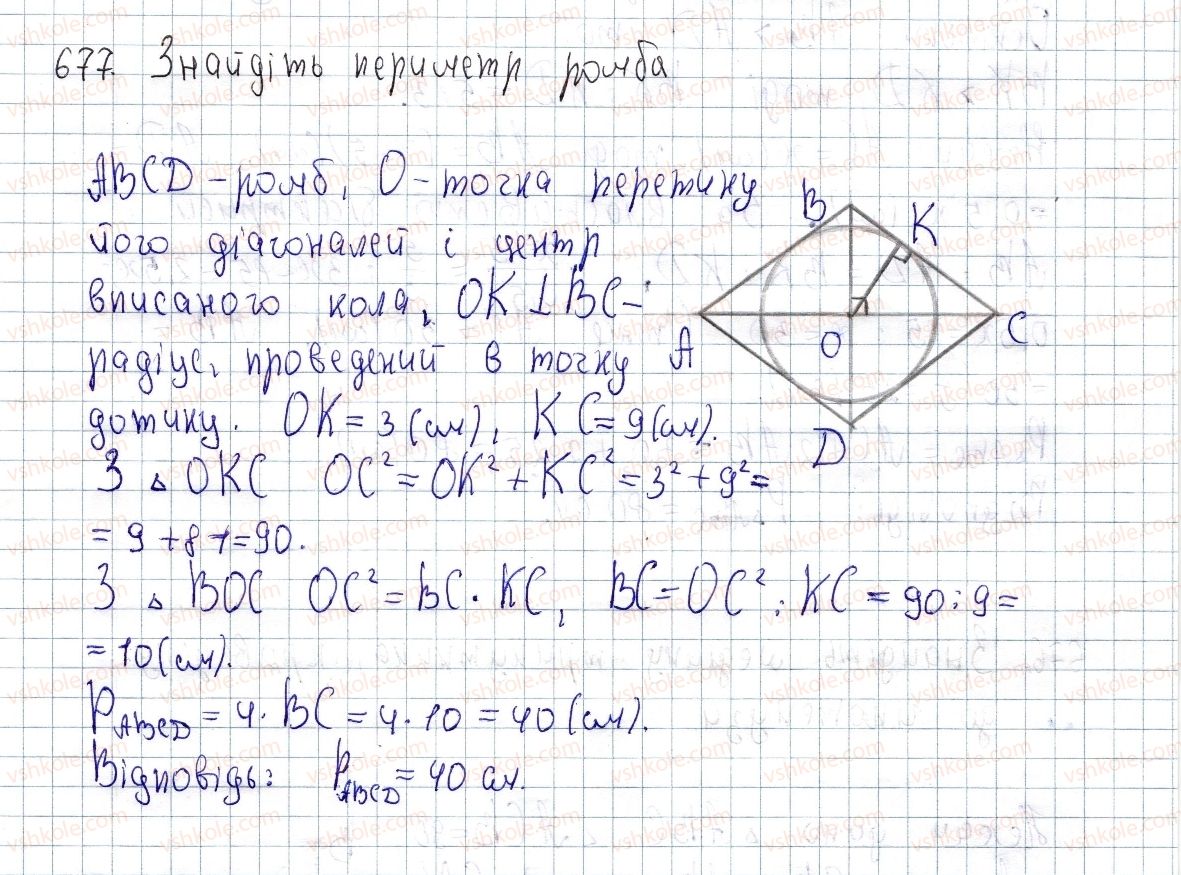 677. Знайдіть периметр ромба
ABCD – ромб, O – точка перетину
його діагоналей і центр
вписаного кола, OK ⊥ BC –
радіус, проведений в точку
дотику. OK = 3 (см), KC = 9 (см).
З △ OKC OC² = OK² + KC² = 3² + 9² =
= 9 + 81 = 90.
З △ BOC OC² = BC · KC, BC = OC² : KC = 90 : 9 =
= 10 (см).
P_ABCD = 4 · BC = 4 · 10 = 40 (см).
Відповідь: P_ABCD = 40 см.
B
K
A
O
C
D
vshkole.com